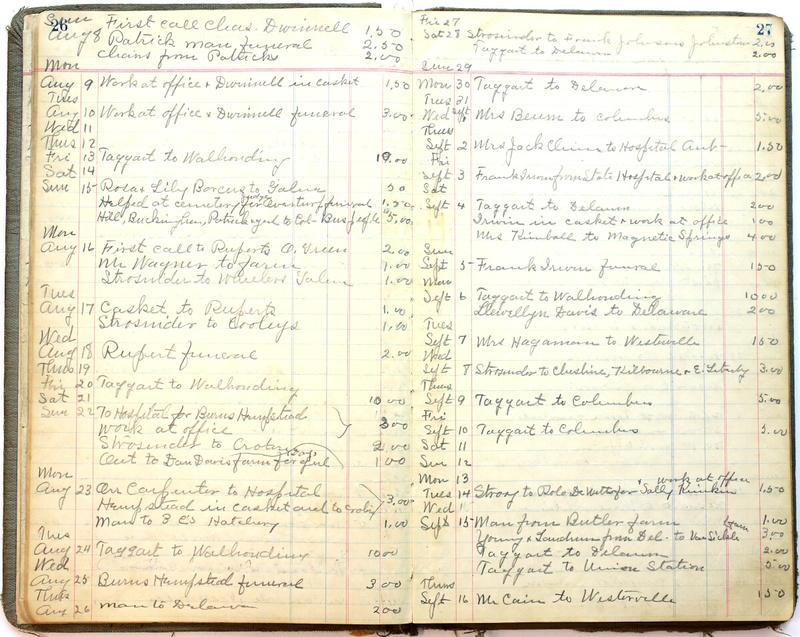 26
Sun First call Chas. Dwinnell 1.50
Aug 8 Patrick man, funeral 2.50
Chairs from Patricks 2.00
Mon
Aug 9 Work at office & Dwinnell in casket 1.50
Tues
Aug 10 Work at office & Dwinnell funeral 3.00
Wed 11
Thurs 12
Fri 13 Taggart to Walhonding 10.00
Sat 14
Sun 15 Rosa & Lily to Galena 50
Helped at cemetery for funeral 1.50
Hill, Buckingham, Patrick to Col- Bus 5.00
Mon
Aug 16 First call to Ruperts O. Green 2.00
Mr Wagner to farm 1.00
Strosnider to Wheelers 1.00
Tues
Aug 17 Casket to Ruperts 1.00
Strosnider to Cooleys 1.00
Wed
Aug 18 Rupert funeral 2.00
Thurs 19
Fri 20 Taggart to Walhonding
Sat 21 10.00
Sun 22 To Hospital for Burns Hempstead
work at office 3.00
Strosnider to Croton 2.00
Out to Dan Davis farm for girl 1.00
Mon
Aug 23 Orr Carpenter to Hospital
Hempstead in casket and to Croton 3.00
Man to 3 Cs Hatchery 1.00
Tues
Aug 24 Taggart to Walhonding 10.00
Wed
Aug 25 Burns Hempsted funeral 3.00
Thurs
Aug 26 man to Delaware 2.00
27
Fri 27
Sat 28 Strosnider to Frank Johnsons Johnstown
Taggart to Delaware 2.00
Sun 29
Mon 30 Taggart to Delaware 2.00
Tues 31
Wed Sept 1 Mrs Beum to Columbus 5.00
Thurs
Sept 2 Mrs Jack Cline to Hospital Amb- 1.50
Fri
Sept 3 Frank Irwin from State Hospital & work at office 2.00
Sat
Sept 4 Taggart to Delaware 2.00
Irwin in casket & work at office 1.00
Mrs Kimball to Magnetic Springs 4.00
Sun
Sept 5 Frank Irwin funeral 1.50
Mon
Sept 6 Taggart to Walhonding 10.00
Llewellyn Davis to Delaware 2.00
Tues
Sept 7 Mrs Hagaman to Westerville 1.50
Wed
Sept 8 Strosnider to Cheshire, Kilbourne & E. Liberty 3.00
Thurs
Sept 9 Taggart to Columbus 5.00
Fri
Sept 10 Taggart to Columbus 5.00
Sat 11
Sun 12
Mon 13 work at office
Tues 14 Strosy to Bole DeWitt for & Sally 1.50
Wed
Sept 15 Man from Butler farm 1.00
Young & from Del- to Van Sickle farm 3.00
Taggart to Delaware 2.00
Taggart to Union Station 5.00
Thurs
Sept 16 Mr Cain to Westerville 1.50